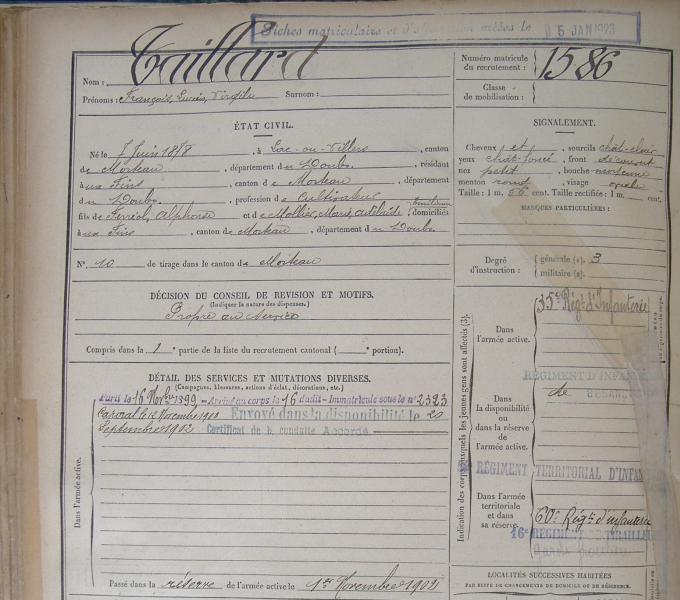 Fiches matriculaires et d' créées le 5 JAN 1923
Taillard
Nom :
Prénoms : François, Lucien, Virgile Surnom :
Numéro matricule
du recrutement : 1586
Classe
de mobilisation :
ÉTAT CIVIL.
Né le Juin 1878, à Lac-ou-Villers, canton
de Morteau, département du Doubs, résidant
à ux Fins, canton de Morteau, département
du Doubs, profession de Cultivateur
fils de Féréol, Alphonse et de Mollier, Marie, Adélaïde domiciliés
à ux Fins, canton de Morteau, département du Doubs.
N° 10 de tirage dans le canton de Morteau
SIGNALEMENT.
Cheveux et sourcils chât-clair
yeux chât-foncé, front découvert
nez petit, bouche moyenne
menton rond, visage ovale
Taille : 1 m. 56 cent. Taille rectifiée : 1 m. cent.
MARQUES PARTICULIÈRES :
Degré
d'instruction :
générale (2). 3
militaire (2).
DÉCISION DU CONSEIL DE REVISION ET MOTIFS.
(Indiquer la nature des dispenses.)
Propre au service
Compris dans la 1e partie de la liste du recrutement cantonal ( portion).
DÉTAIL DES SERVICES ET MUTATIONS DIVERSES.
(Campagnes, blessures, actions d'éclat, décorations, etc.)
Parti le 16 Nov 1899 - Arrivé au corps le 16 dudit - Immatriculé sous le n° 2323
Caporal le 12 Novembre 1900 Envoyé dans la disponibilité le 20
Septembre 1902 Certificat de b. conduite Accordé
Dans l'armée active.
Passé dans la réserve de l'armée active le 1er Novembre 1902
Indication des corps auxquels les jeunes gens sont affectés (3).
Dans
l'armée active.
35e Régt d'Infanterie
Dans
la disponibilité
ou dans la réserve
de l'armée active.
RÉGIMENT D'INFANTERIE
de
RÉGIMENT TERRITORIAL D'INFAN
Dans l'armée
territoriale
et dans
sa réserve.
60e Régt d'infanterie
16e RÉGIMENT
LOCALITÉS SUCCESSIVES HABITÉES
PAR SUITE DE CHANGEMENTS DE DOMICILE OU DE RÉSIDENCE.